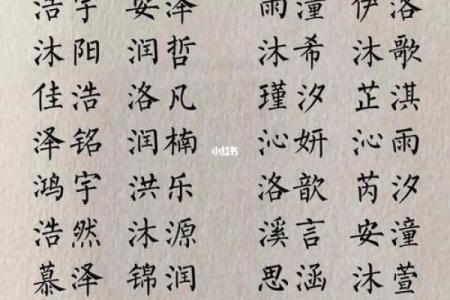 浩宇 安泽 雨潼 伊洛
沐阳 润哲 沐希 沐歌
佳浩 洛凡 瑾汐 芷淇
泽铭 润楠 沁妍 沁雨
小红书
鸿宇 洪乐 洛歆 芮汐
浩然 沐源 溪言 安潼
慕泽 锦润 思涵 沐萱